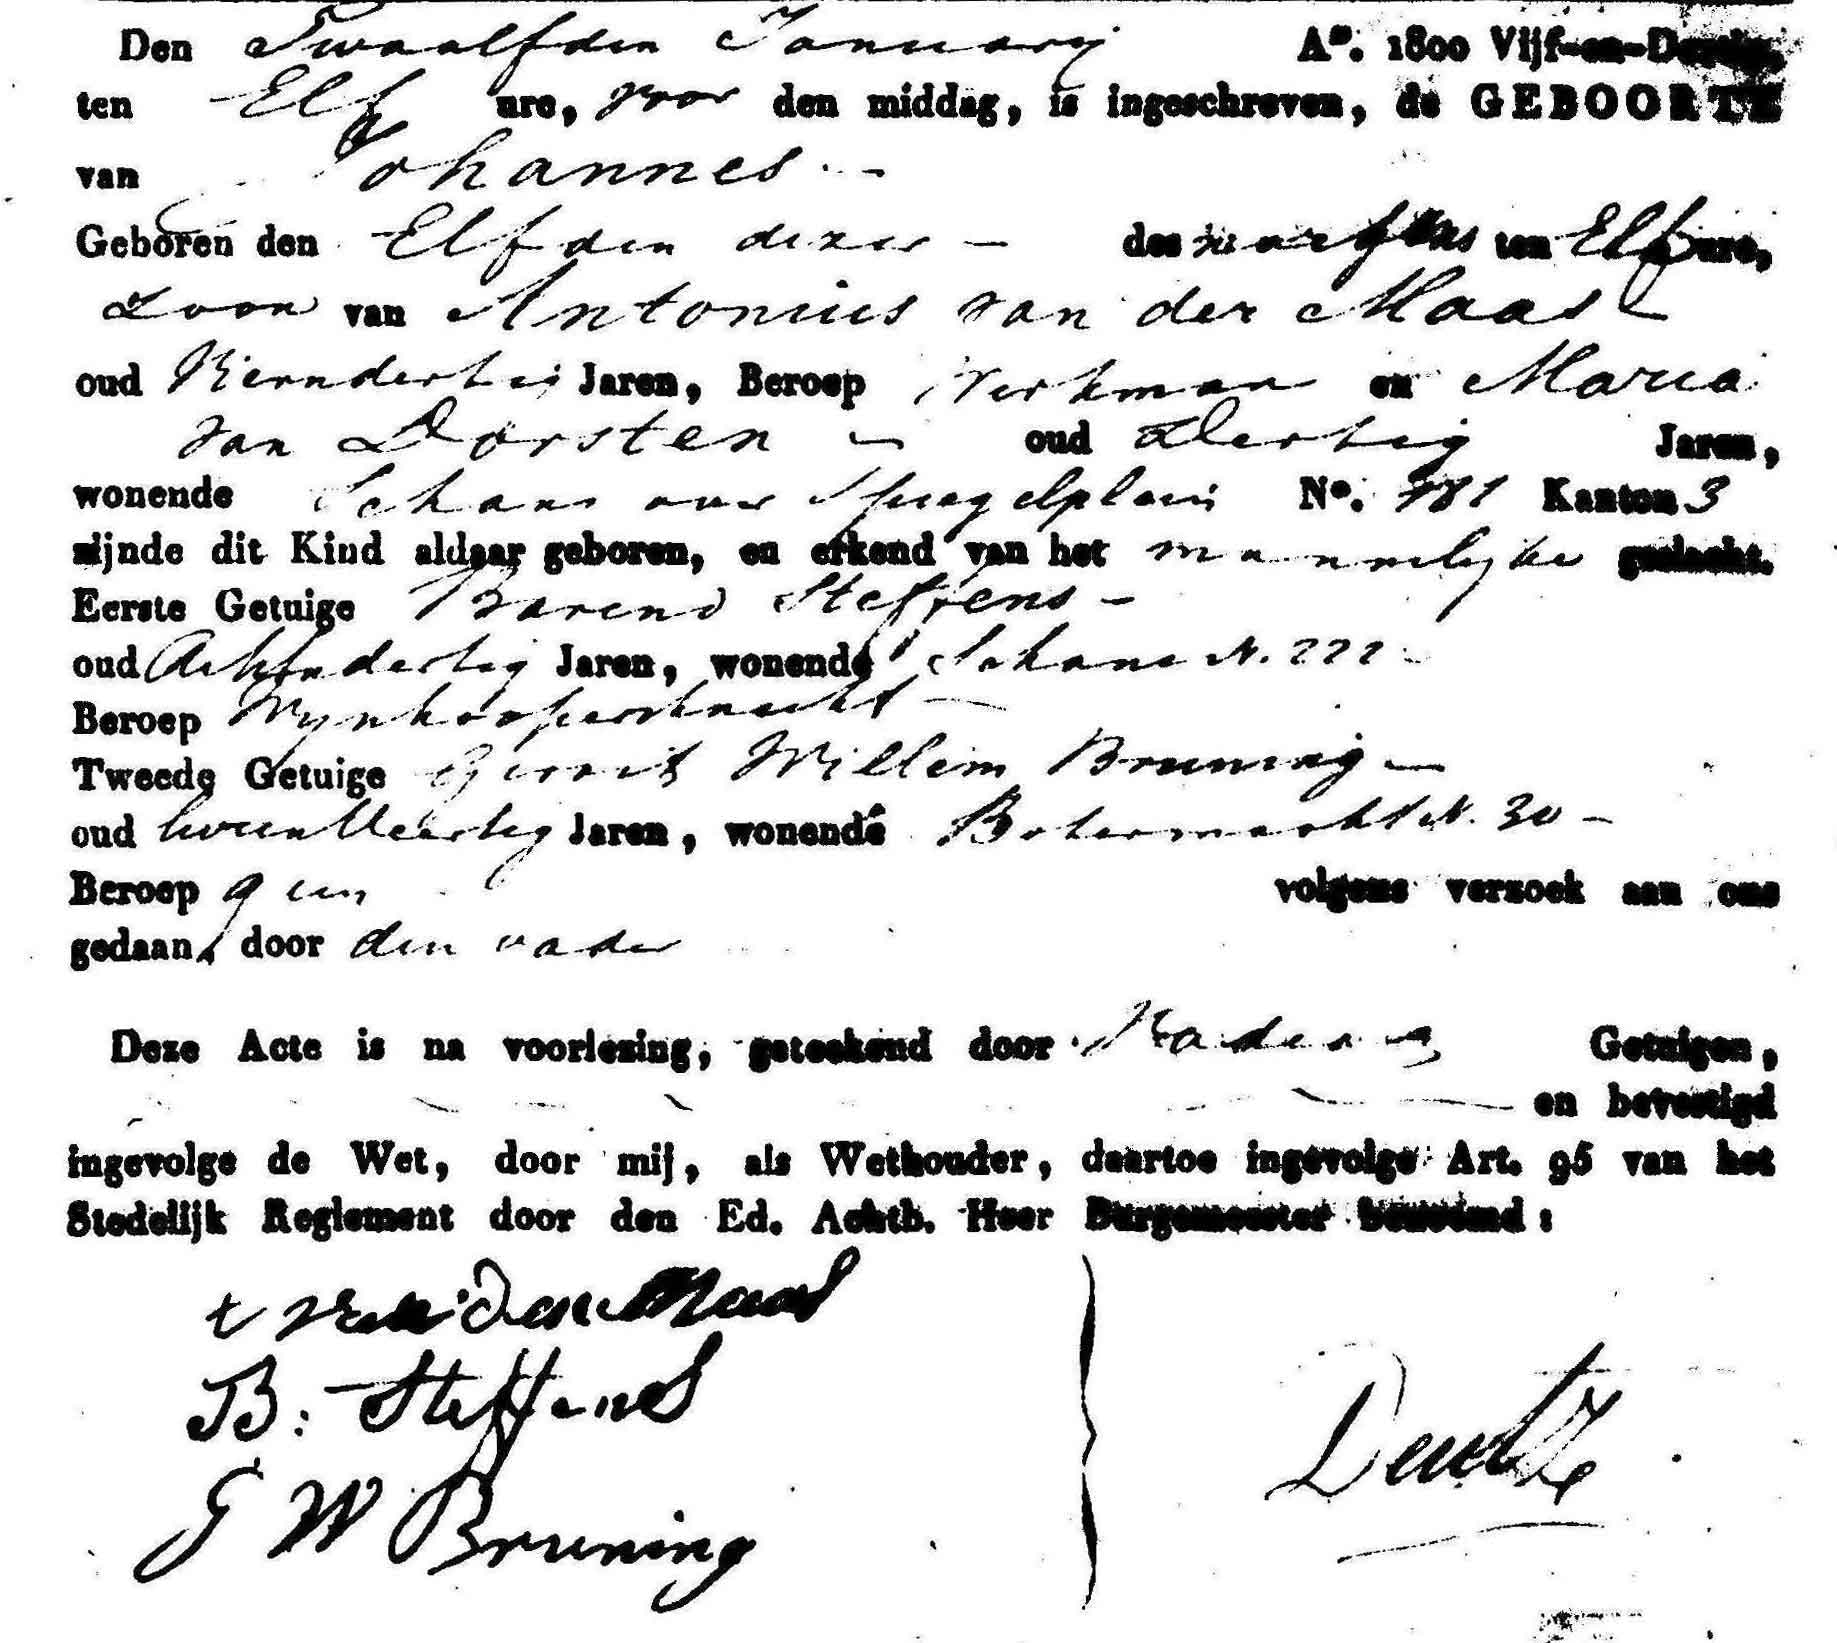 Den Twaalfden January A°. 1800 Vijf-en-Dertig,
ten Elf ure, voor den middag, is ingeschreven, de GEBOORTE
van Johannes
Geboren den Elfden dezer – des morgens ten Elf ure,
Zoon van Antonius van der Maas
oud Vierndertig Jaren, Beroep Werkman en Maria
van Dorsten – oud Dertig Jaren,
wonende Schans over Spiegelplein N°. 181 Kanton 3
zijnde dit Kind aldaar geboren, en erkend van het mannelyke geslacht.
Eerste Getuige Barend Steffens –
oud Achtndertig Jaren, wonende Schans N. 222 –
Beroep Wynkopersknecht –
Tweede Getuige Gerrit Willem Bruning –
oud tweenVeertig Jaren, wonende Botermarkt N. 30 –
Beroep geen volgens verzoek aan ons
gedaan, door den vader
Deze Acte is na voorlezing, geteekend door Vader en Getuigen,
en bevestigd
ingevolge de Wet, door mij, als Wethouder, daartoe ingevolge Art. 95 van het
Stedelijk Reglement door den Ed. Achtb. Heer Burgemeester benoemd:
van der Maas
B: Steffens
G W Bruning